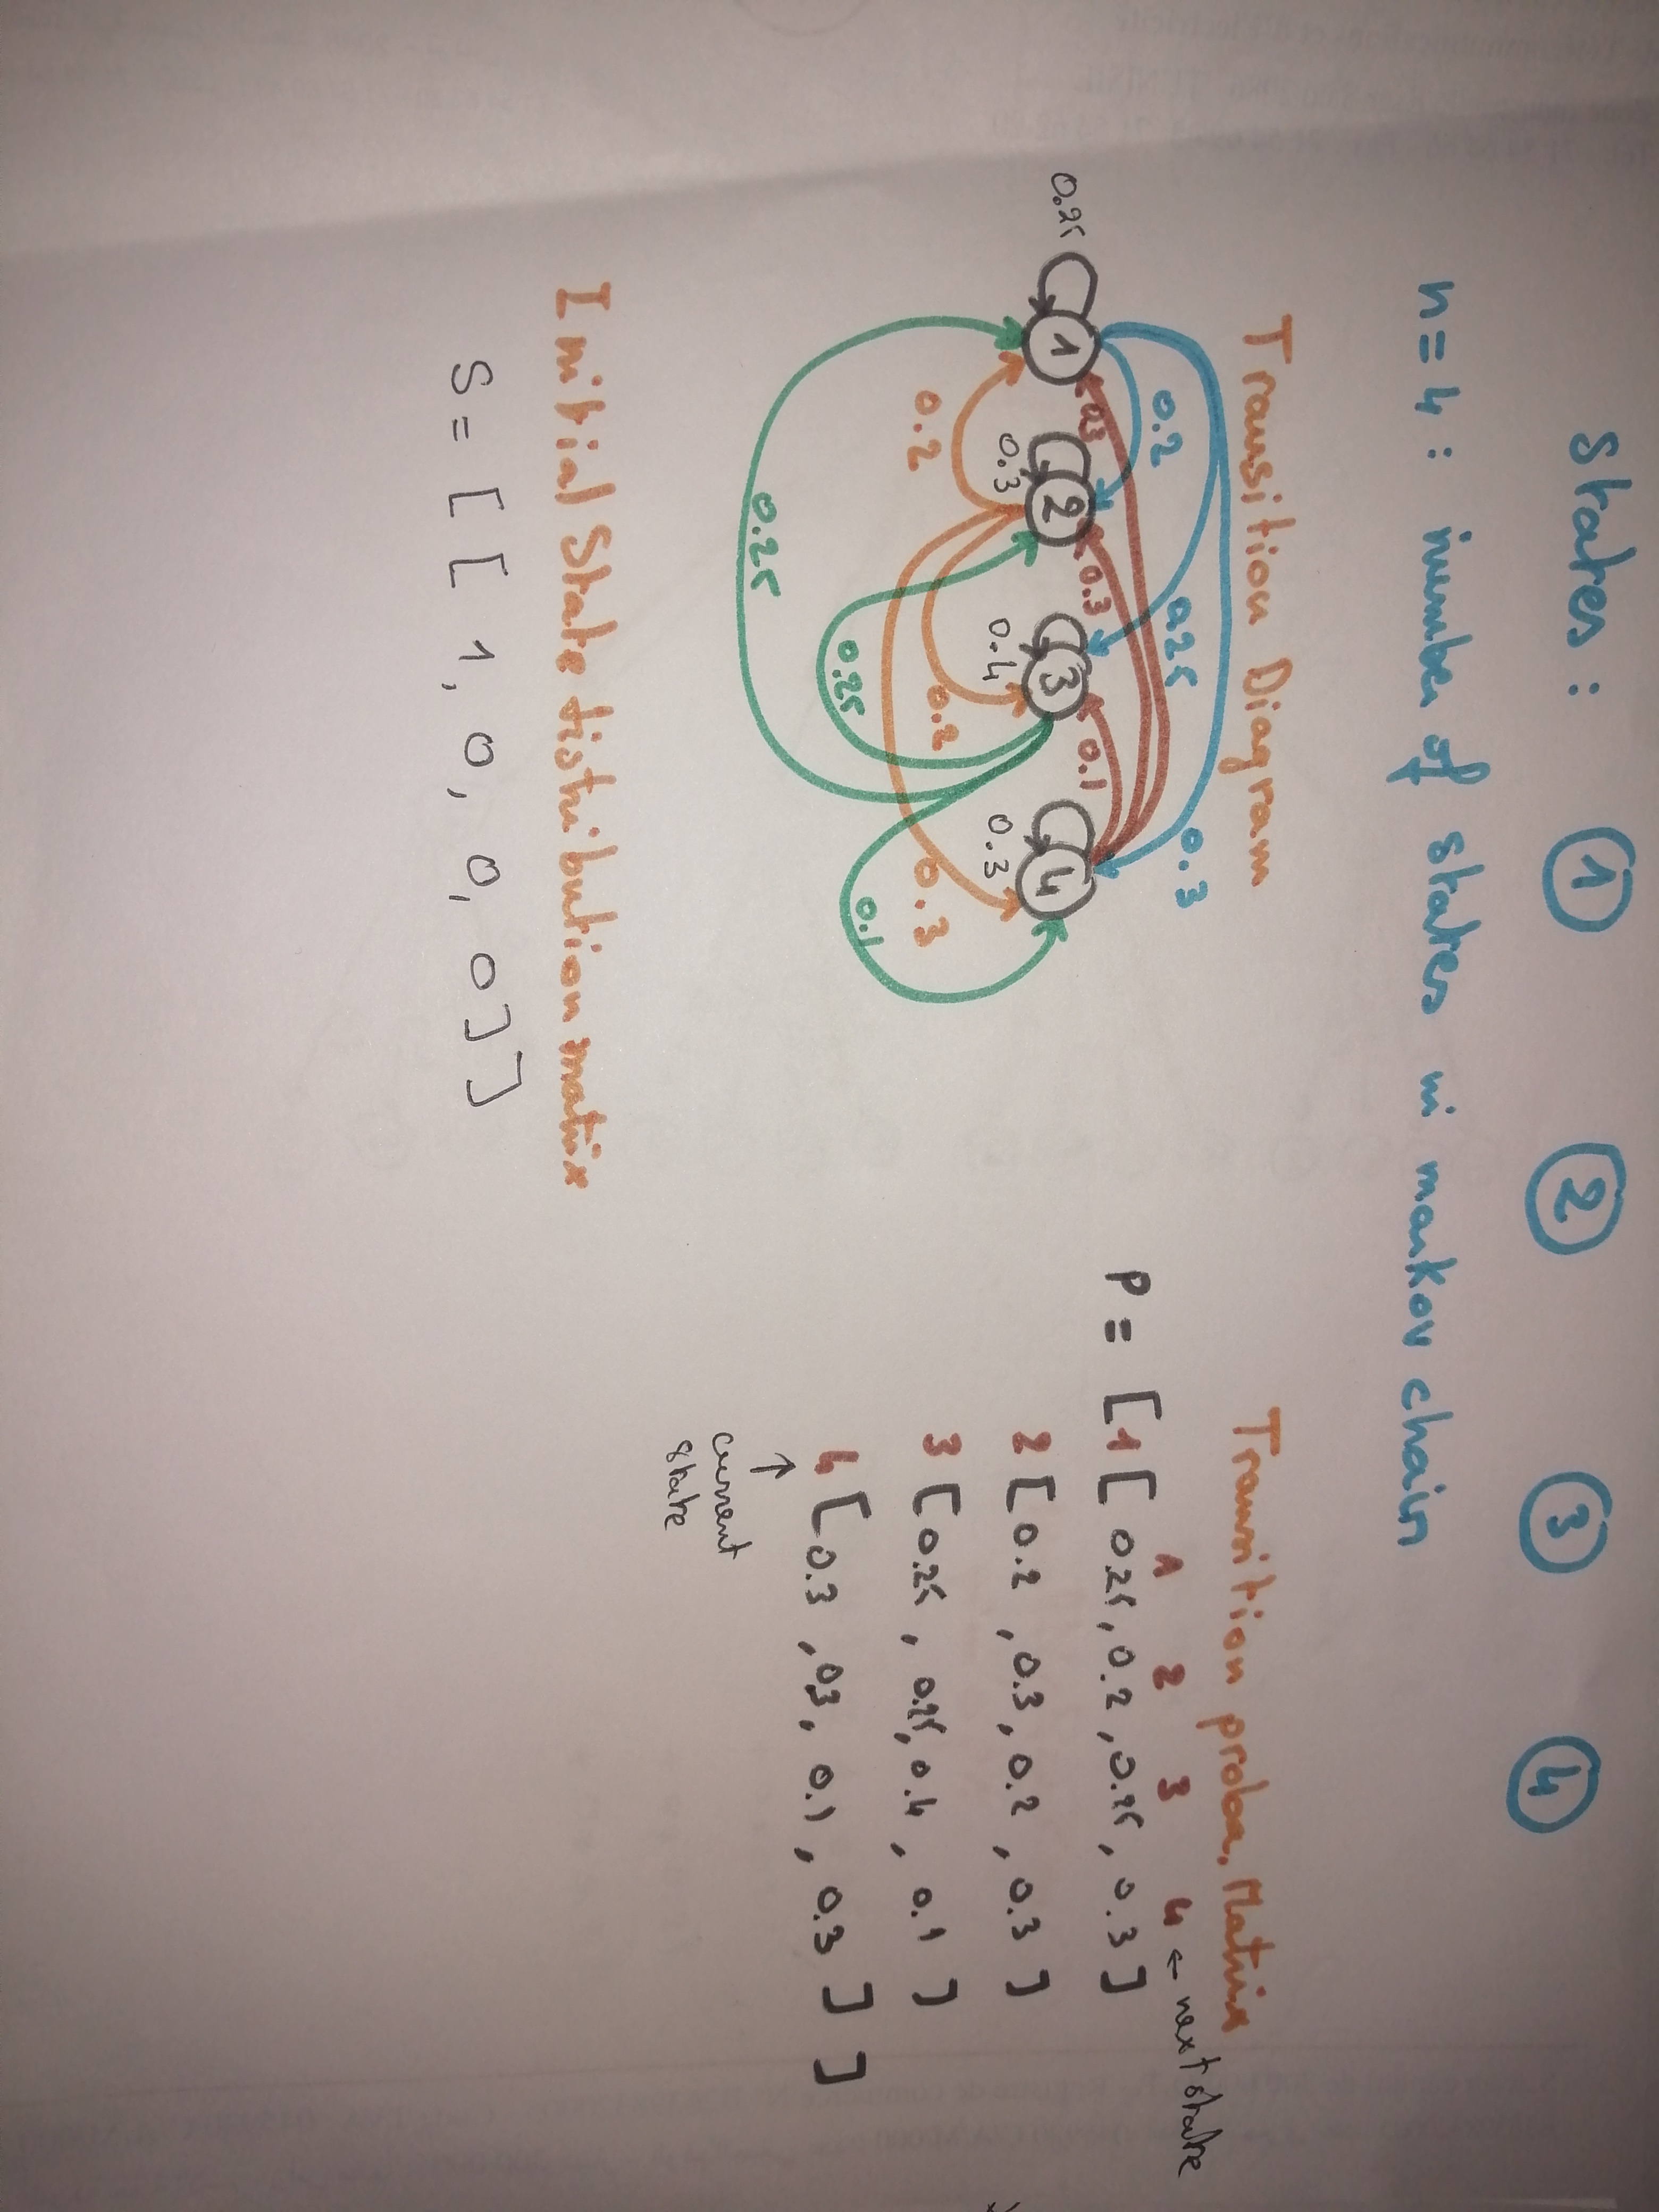 states : 1 2 3 4
n = 4 : number of states in markov chain
Transition Diagram
0.2 0.25 0.3
0.3 0.3 0.1
0.25 1 2 3 4
0.3 0.4 0.3
0.2 0.2 0.3
0.25 0.1
0.25
Transition proba. Matrix
1 2 3 4 ← next state
P = [ 1 [ 0.25, 0.2, 0.25, 0.3 ]
2 [ 0.2, 0.3, 0.2, 0.3 ]
3 [ 0.25, 0.25, 0.4, 0.1 ]
4 [ 0.3, 0.3, 0.1, 0.3 ] ]
↑
current
state
Initial State distribution matrix
S = [ [ 1, 0, 0, 0 ] ]